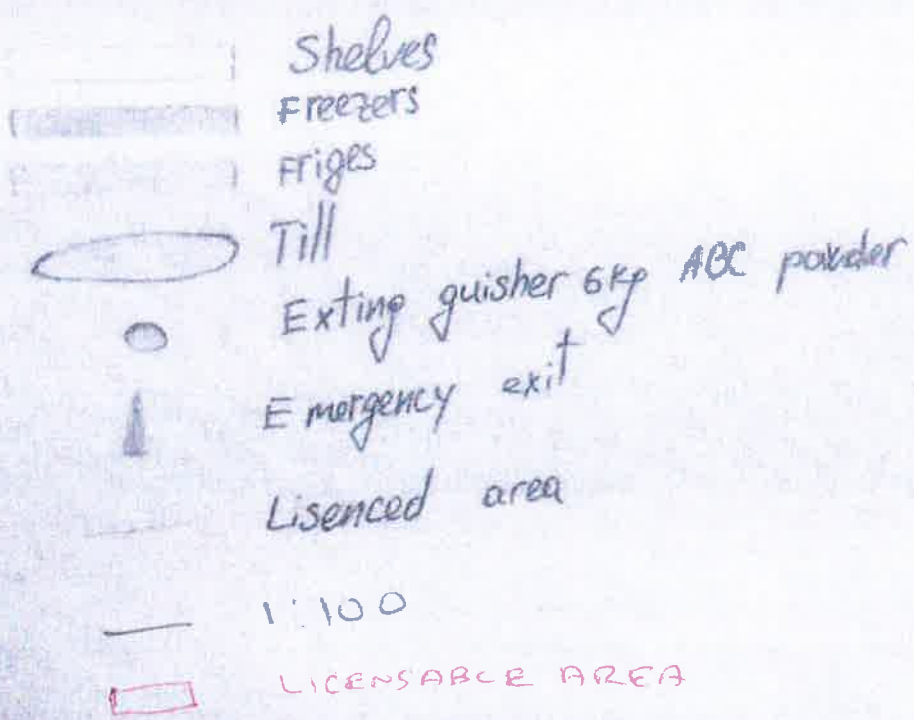 Shelves
Freezers
Friges
Till
Exting guisher 6Kg ABC powder
Emergency exit
Lisenced area
1:100
LICENSABLE AREA